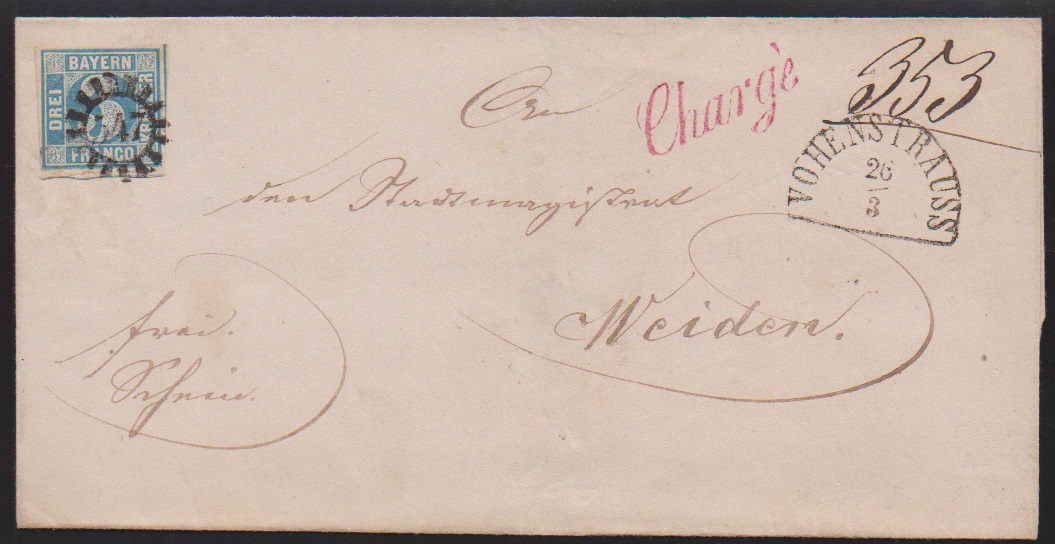 BAYERN
DREI
FRANCO
Chargé
353
An
VOHENSTRAUSS
26
3
den Stadtmagistrat
Weiden.
frei.
Schein.